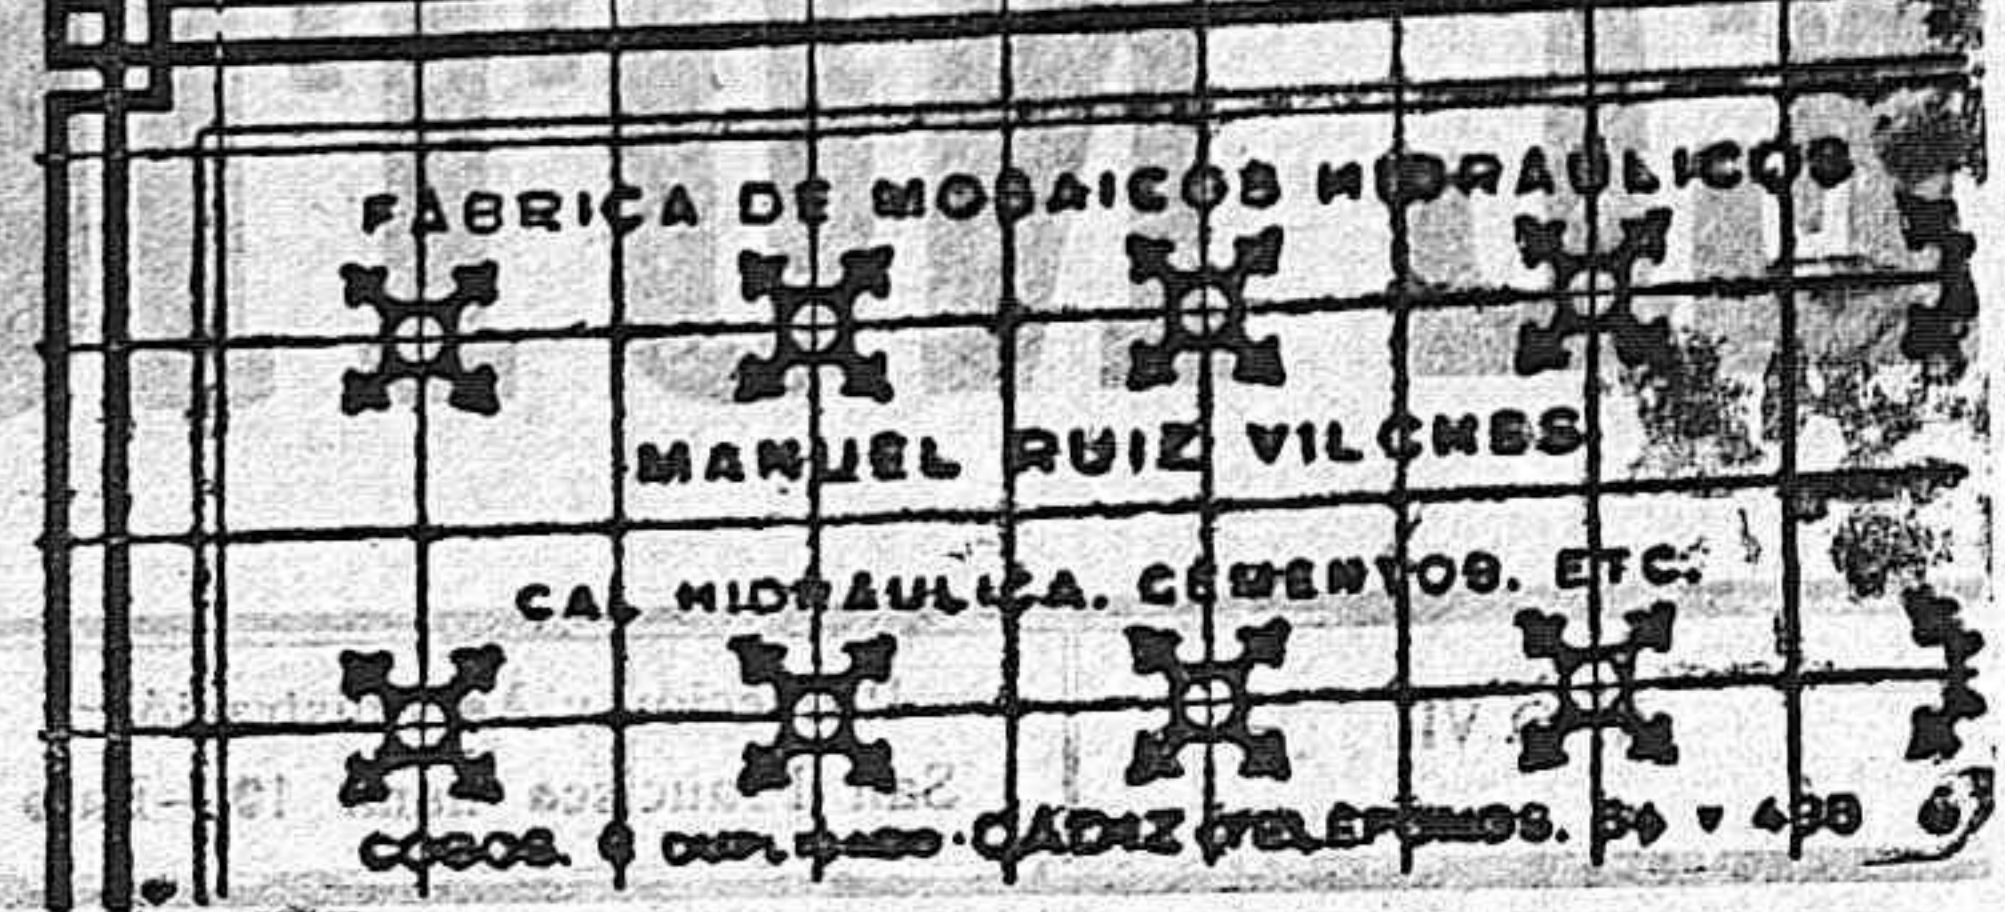 FABRICA DE MOSAICOS HIDRAULICOS
MANUEL RUIZ VILCHES
CAL HIDRAULICA. CEMENTOS. ETC.
COBOS. DUPLICADO · CADIZ TELEFONOS.